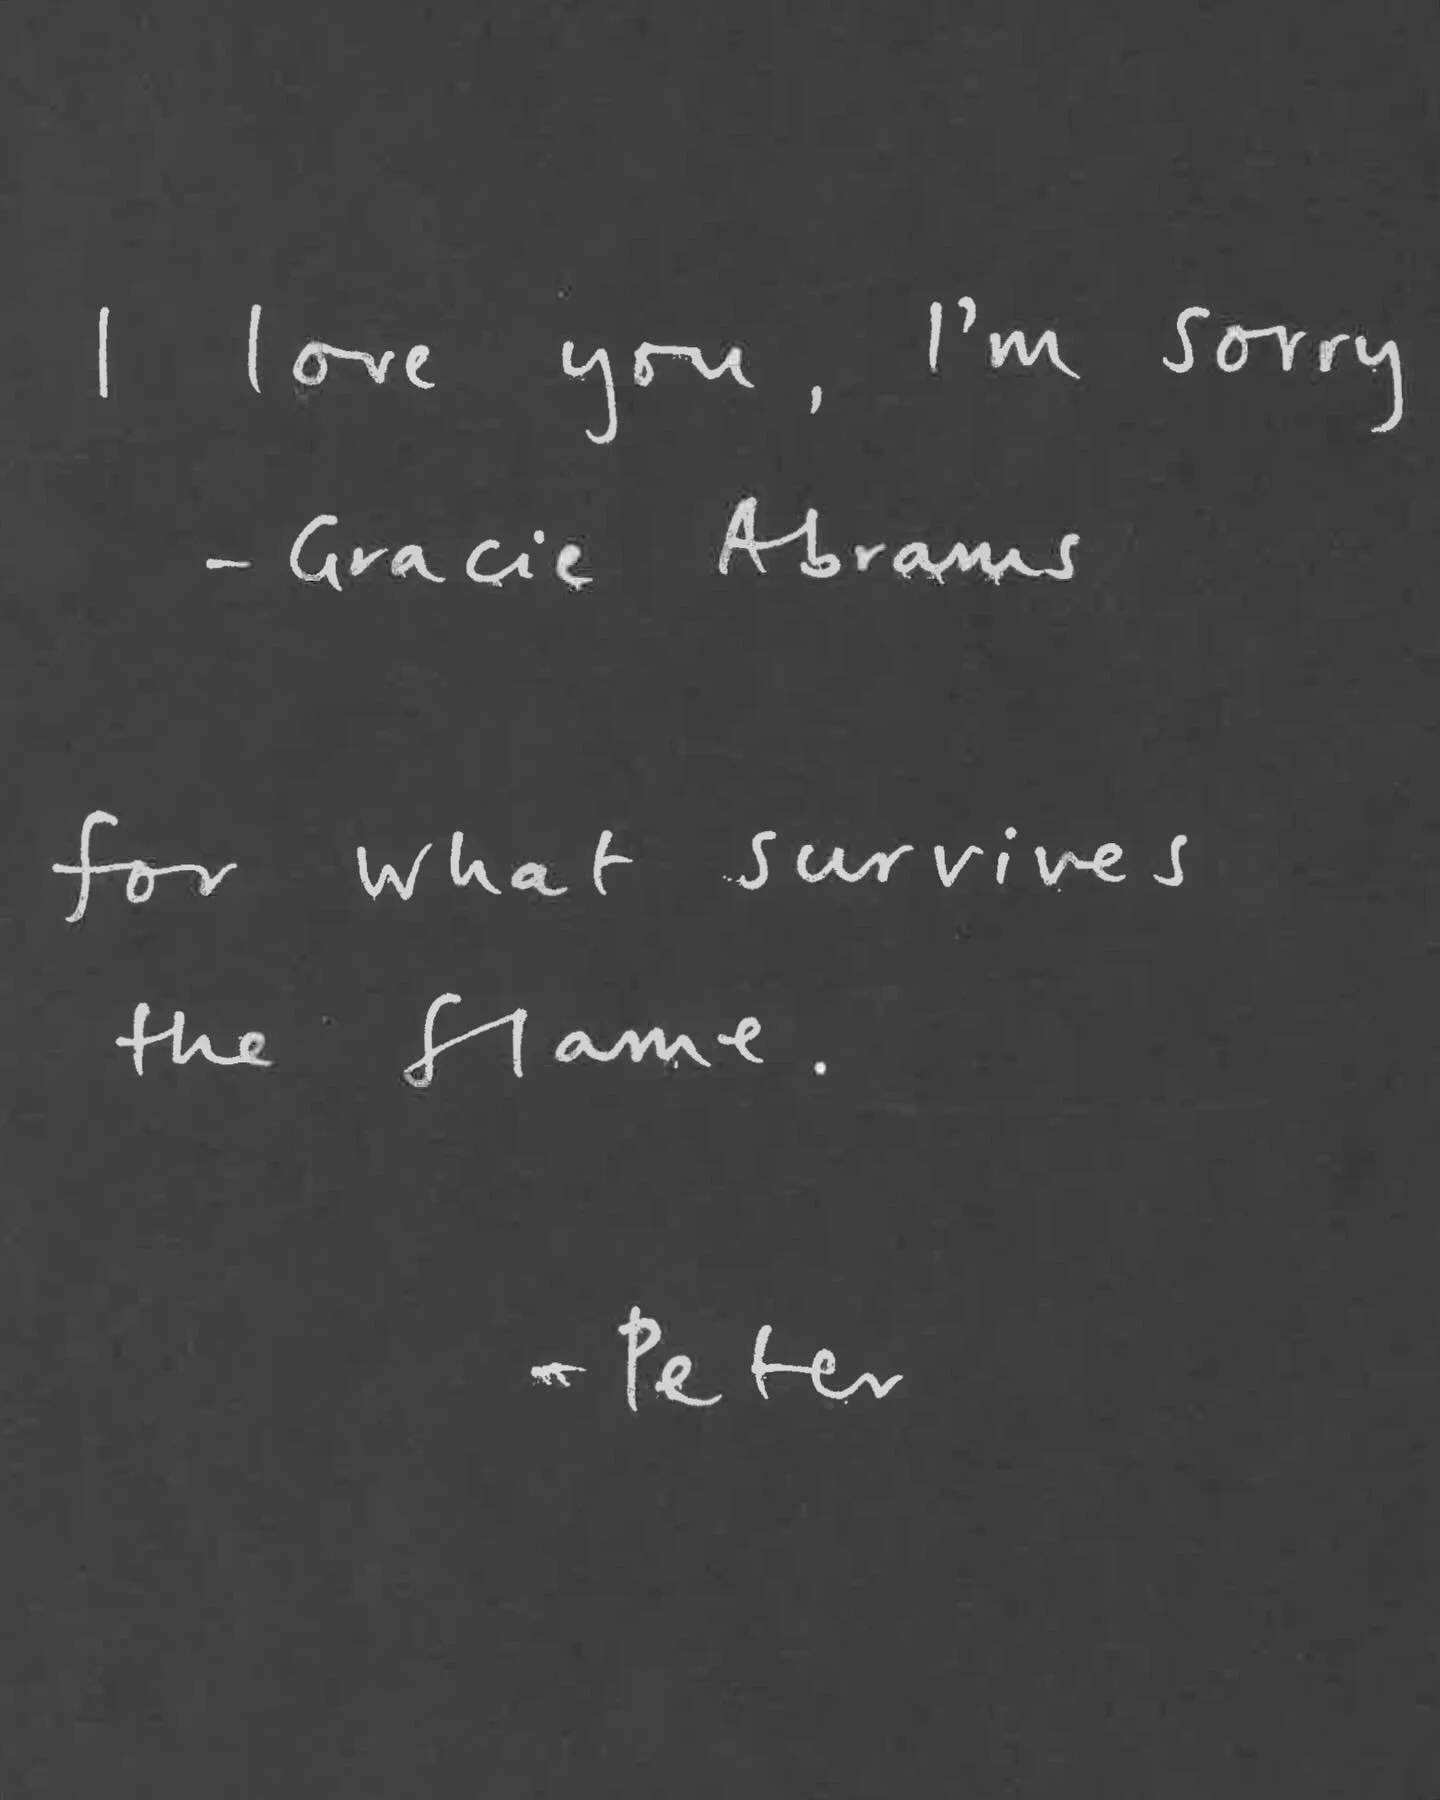 I love you, I'm sorry
- Gracie Abrams
for what survives
the flame.
- Peter